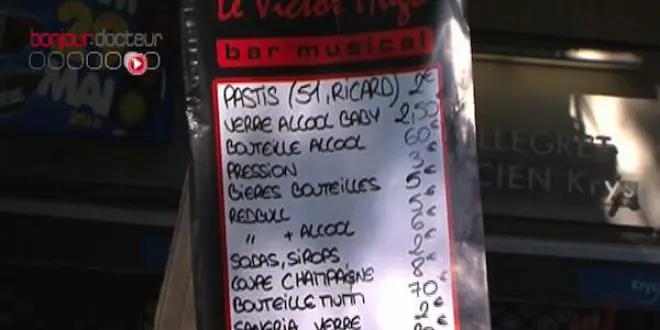 bonjour.docteur
Le Victor Hugo
bar musical
PASTIS (51, RICARD) 2€
VERRE ALCOOL BABY 2,50
BOUTEILLE ALCOOL 60€
PRESSION 3€
BIÈRES BOUTEILLES 5€
REDBULL
" + ALCOOL
SODAS, SIROPS
COUPE CHAMPAGNE
BOUTEILLE MUMM 70€
SANGRIA VERRE
MAI
LLEGRET
CIEN Krys
Krys